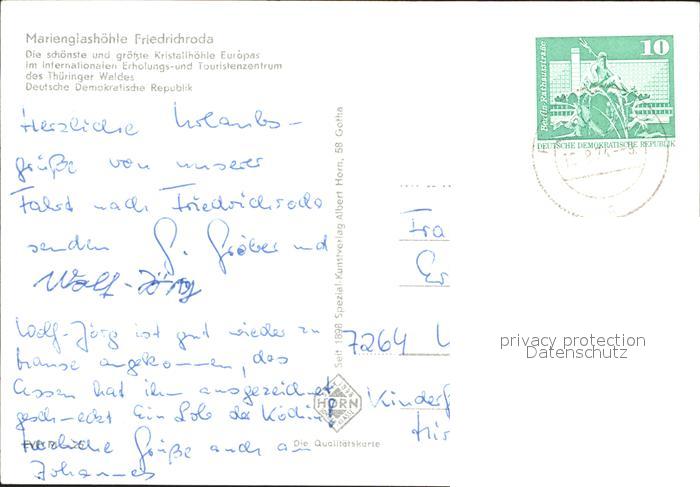 Marienglashöhle Friedrichroda
Die schönste und größte Kristallhöhle Europas
im internationalen Erholungs-und Touristenzentrum
des Thüringer Waldes
Deutsche Demokratische Republik
Herzliche Urlaubs-
grüße von unserer
Fahrt nach Friedrichroda
senden G. Gröber und
Wolf-Jörg
Wolf-Jörg ist gut wieder zu
hause angekommen, das
Essen hat ihm ausgezeichnet
geschmeckt Ein Lob der Köchin!
Herzliche Grüße auch an
Johannes
Seit 1898 Spezial-Kunstverlag Albert Horn, 58 Gotha
HORN
Die Qualitätskarte
10
Berlin, Rathausstraße
DEUTSCHE DEMOKRATISCHE REPUBLIK
Fra
Er
7264
Kinder
privacy protection
Datenschutz